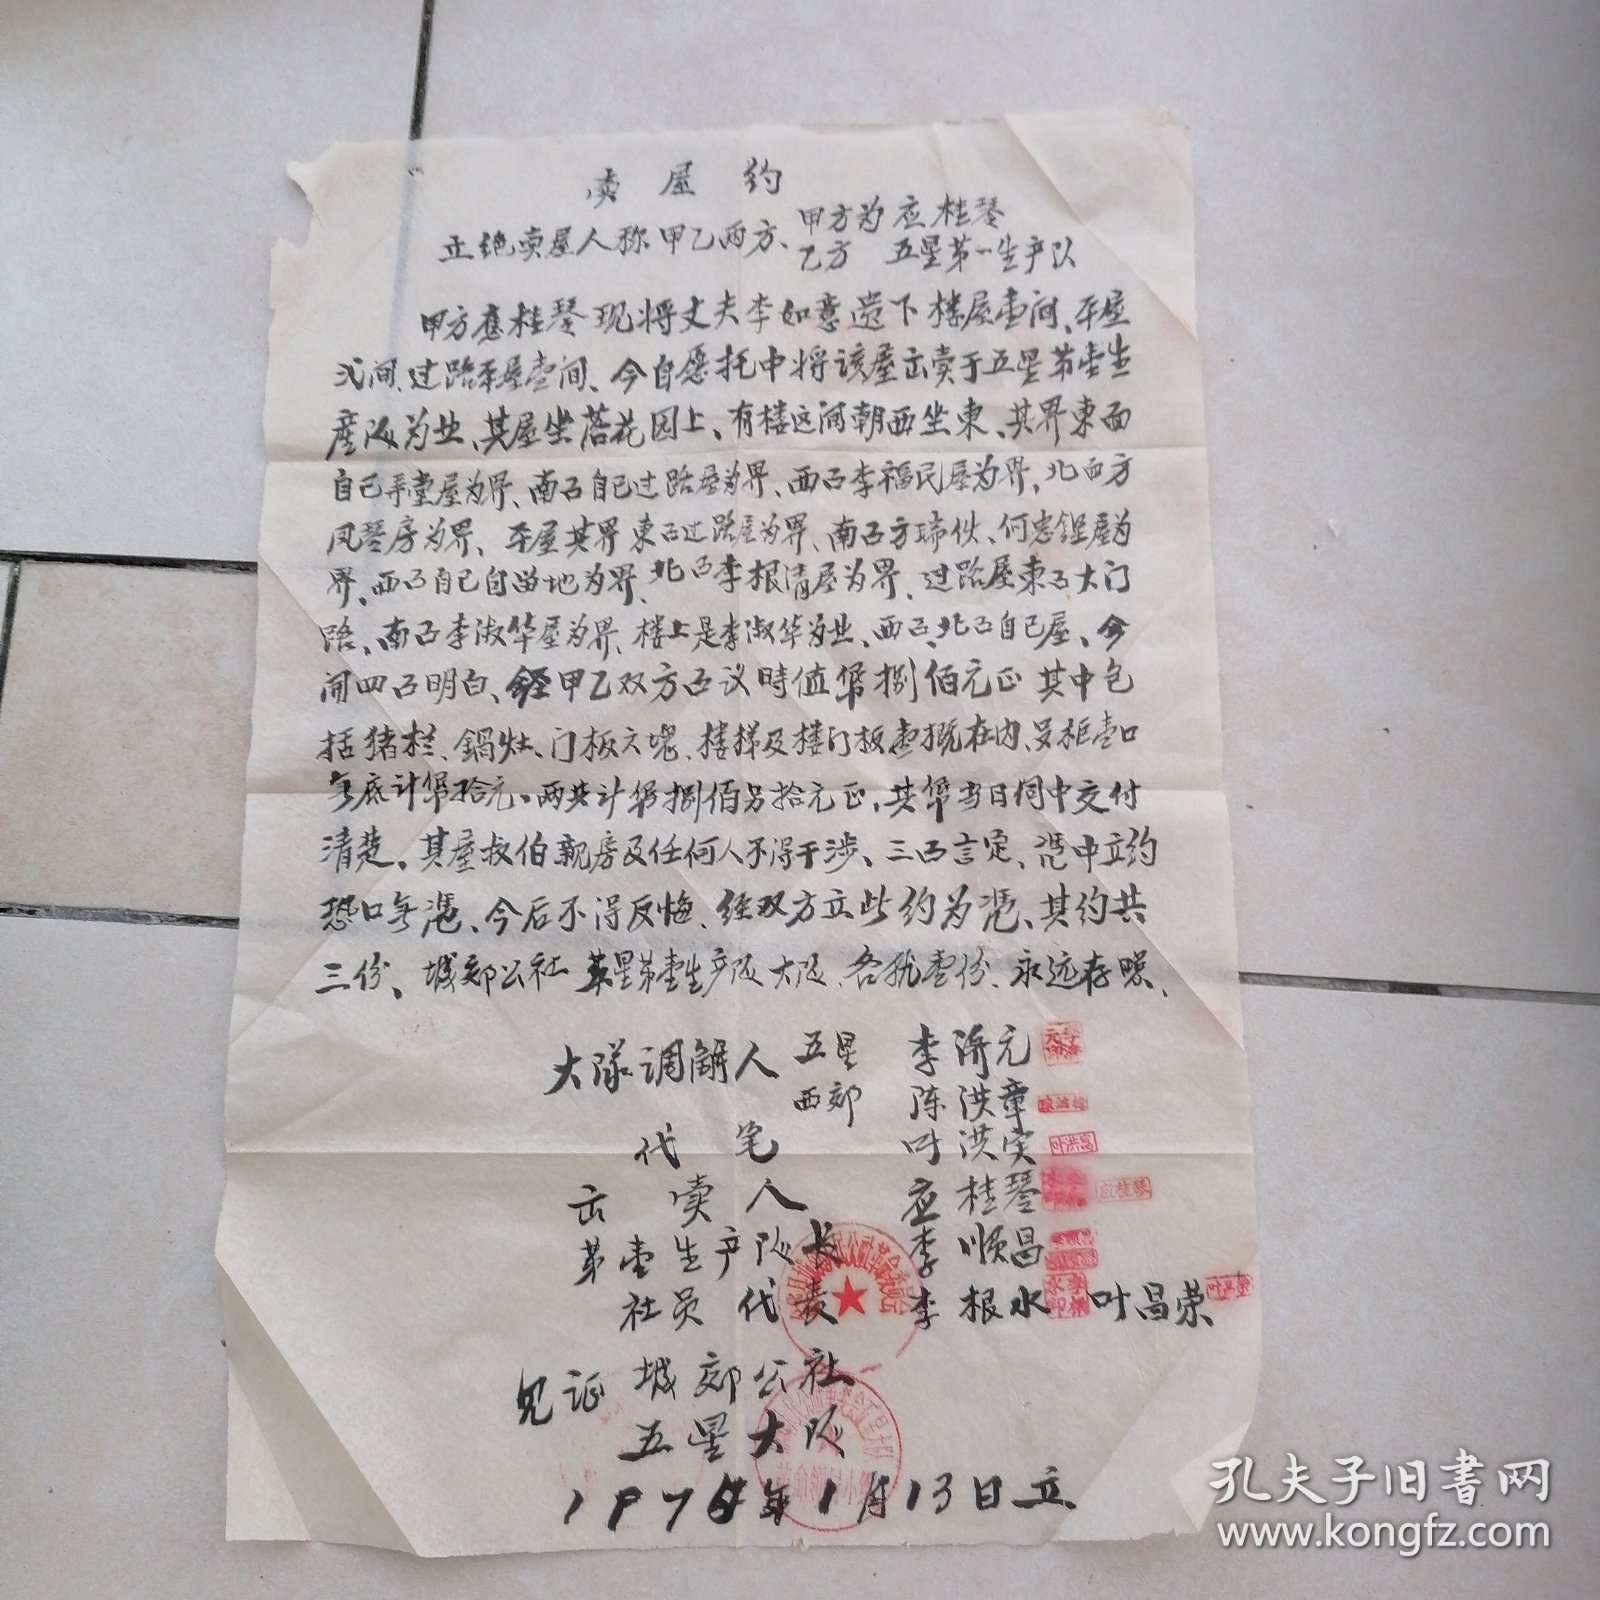 卖屋约
立绝卖屋人称甲乙两方、
甲方为应桂琴
乙方 五星第一生产队
甲方應桂琴现将丈夫李如意遗下楼屋壹间、平屋
弍间、过路平屋壹间、今自愿托中将该屋出卖于五星第壹生
產队为业、其屋坐落花园上、有楼这间朝西坐東、其界東面
自己弄堂屋为界、南面自己过路屋为界、西面李福民屋为界、北面方
凤琴房为界、平屋其界東面过路屋为界、南面方瑞 、何忠 屋为
界、西面自己自留地为界、北面李根清屋为界、过路屋東面大门
路、南面李淑华屋为界、楼上是李淑华为业、西面、北面自己屋、今
闹四面明白、经甲乙双方面议時值 捌佰元正 其中包
括猪栏、鍋灶、门板六塊、楼梯及楼门板壹概在内、另柜壹口
年底计 拾元。两共计 捌佰另拾元正,其 当日同中交付
清楚。其屋叔伯親房及任何人不得干涉、三面言定、憑中立约
恐口無憑、今后不得反悔、经双方立此约为憑、其约共
三份、城郊公社 五星第壹生产队 大队、各执壹份、永远存照、
大隊调解人 五星 李济元
西郊 陈洪章
代笔 叶洪实
出卖人 应桂琴
第壹生产队长 李顺昌
社员代表 李根水 叶昌荣
见证 城郊公社
五星大队
197 年1月13日立
应桂琴
孔夫子旧书网
www.kongfz.com